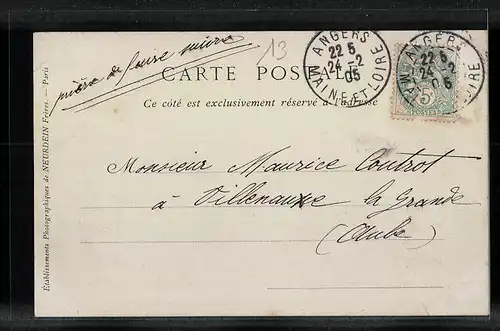 prière de faire suivre
13
ANGERS
22 5
24 -2
05
MAINE-ET-LOIRE
ANGERS
22 5
24 -2
05
5
POSTES
CARTE POSTALE
Ce côté est exclusivement réservé à l'adresse
Monsieur Maurice Coutrot
à Villenauxe la Grande
(Aube)
Établissements Photographiques de NEURDEIN Frères. — Paris